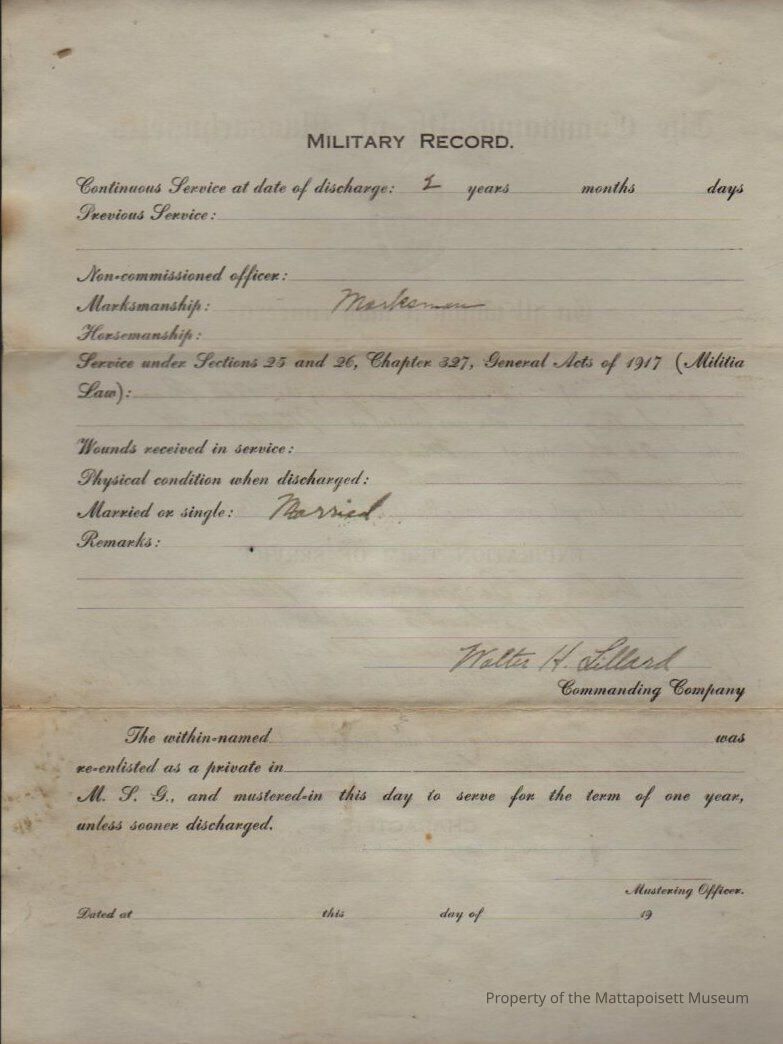 MILITARY RECORD.
Continuous Service at date of discharge: 2 years months days
Previous Service:
Non-commissioned officer:
Marksmanship: Marksman
Horsemanship:
Service under Sections 25 and 26, Chapter 327, General Acts of 1917 (Militia
Law):
Wounds received in service:
Physical condition when discharged:
Married or single: Married
Remarks:
Walter H. Lillard
Commanding Company
The within-named was
re-enlisted as a private in
M. S. G., and mustered-in this day to serve for the term of one year,
unless sooner discharged.
Mustering Officer.
Dated at this day of 19
Property of the Mattapoisett Museum